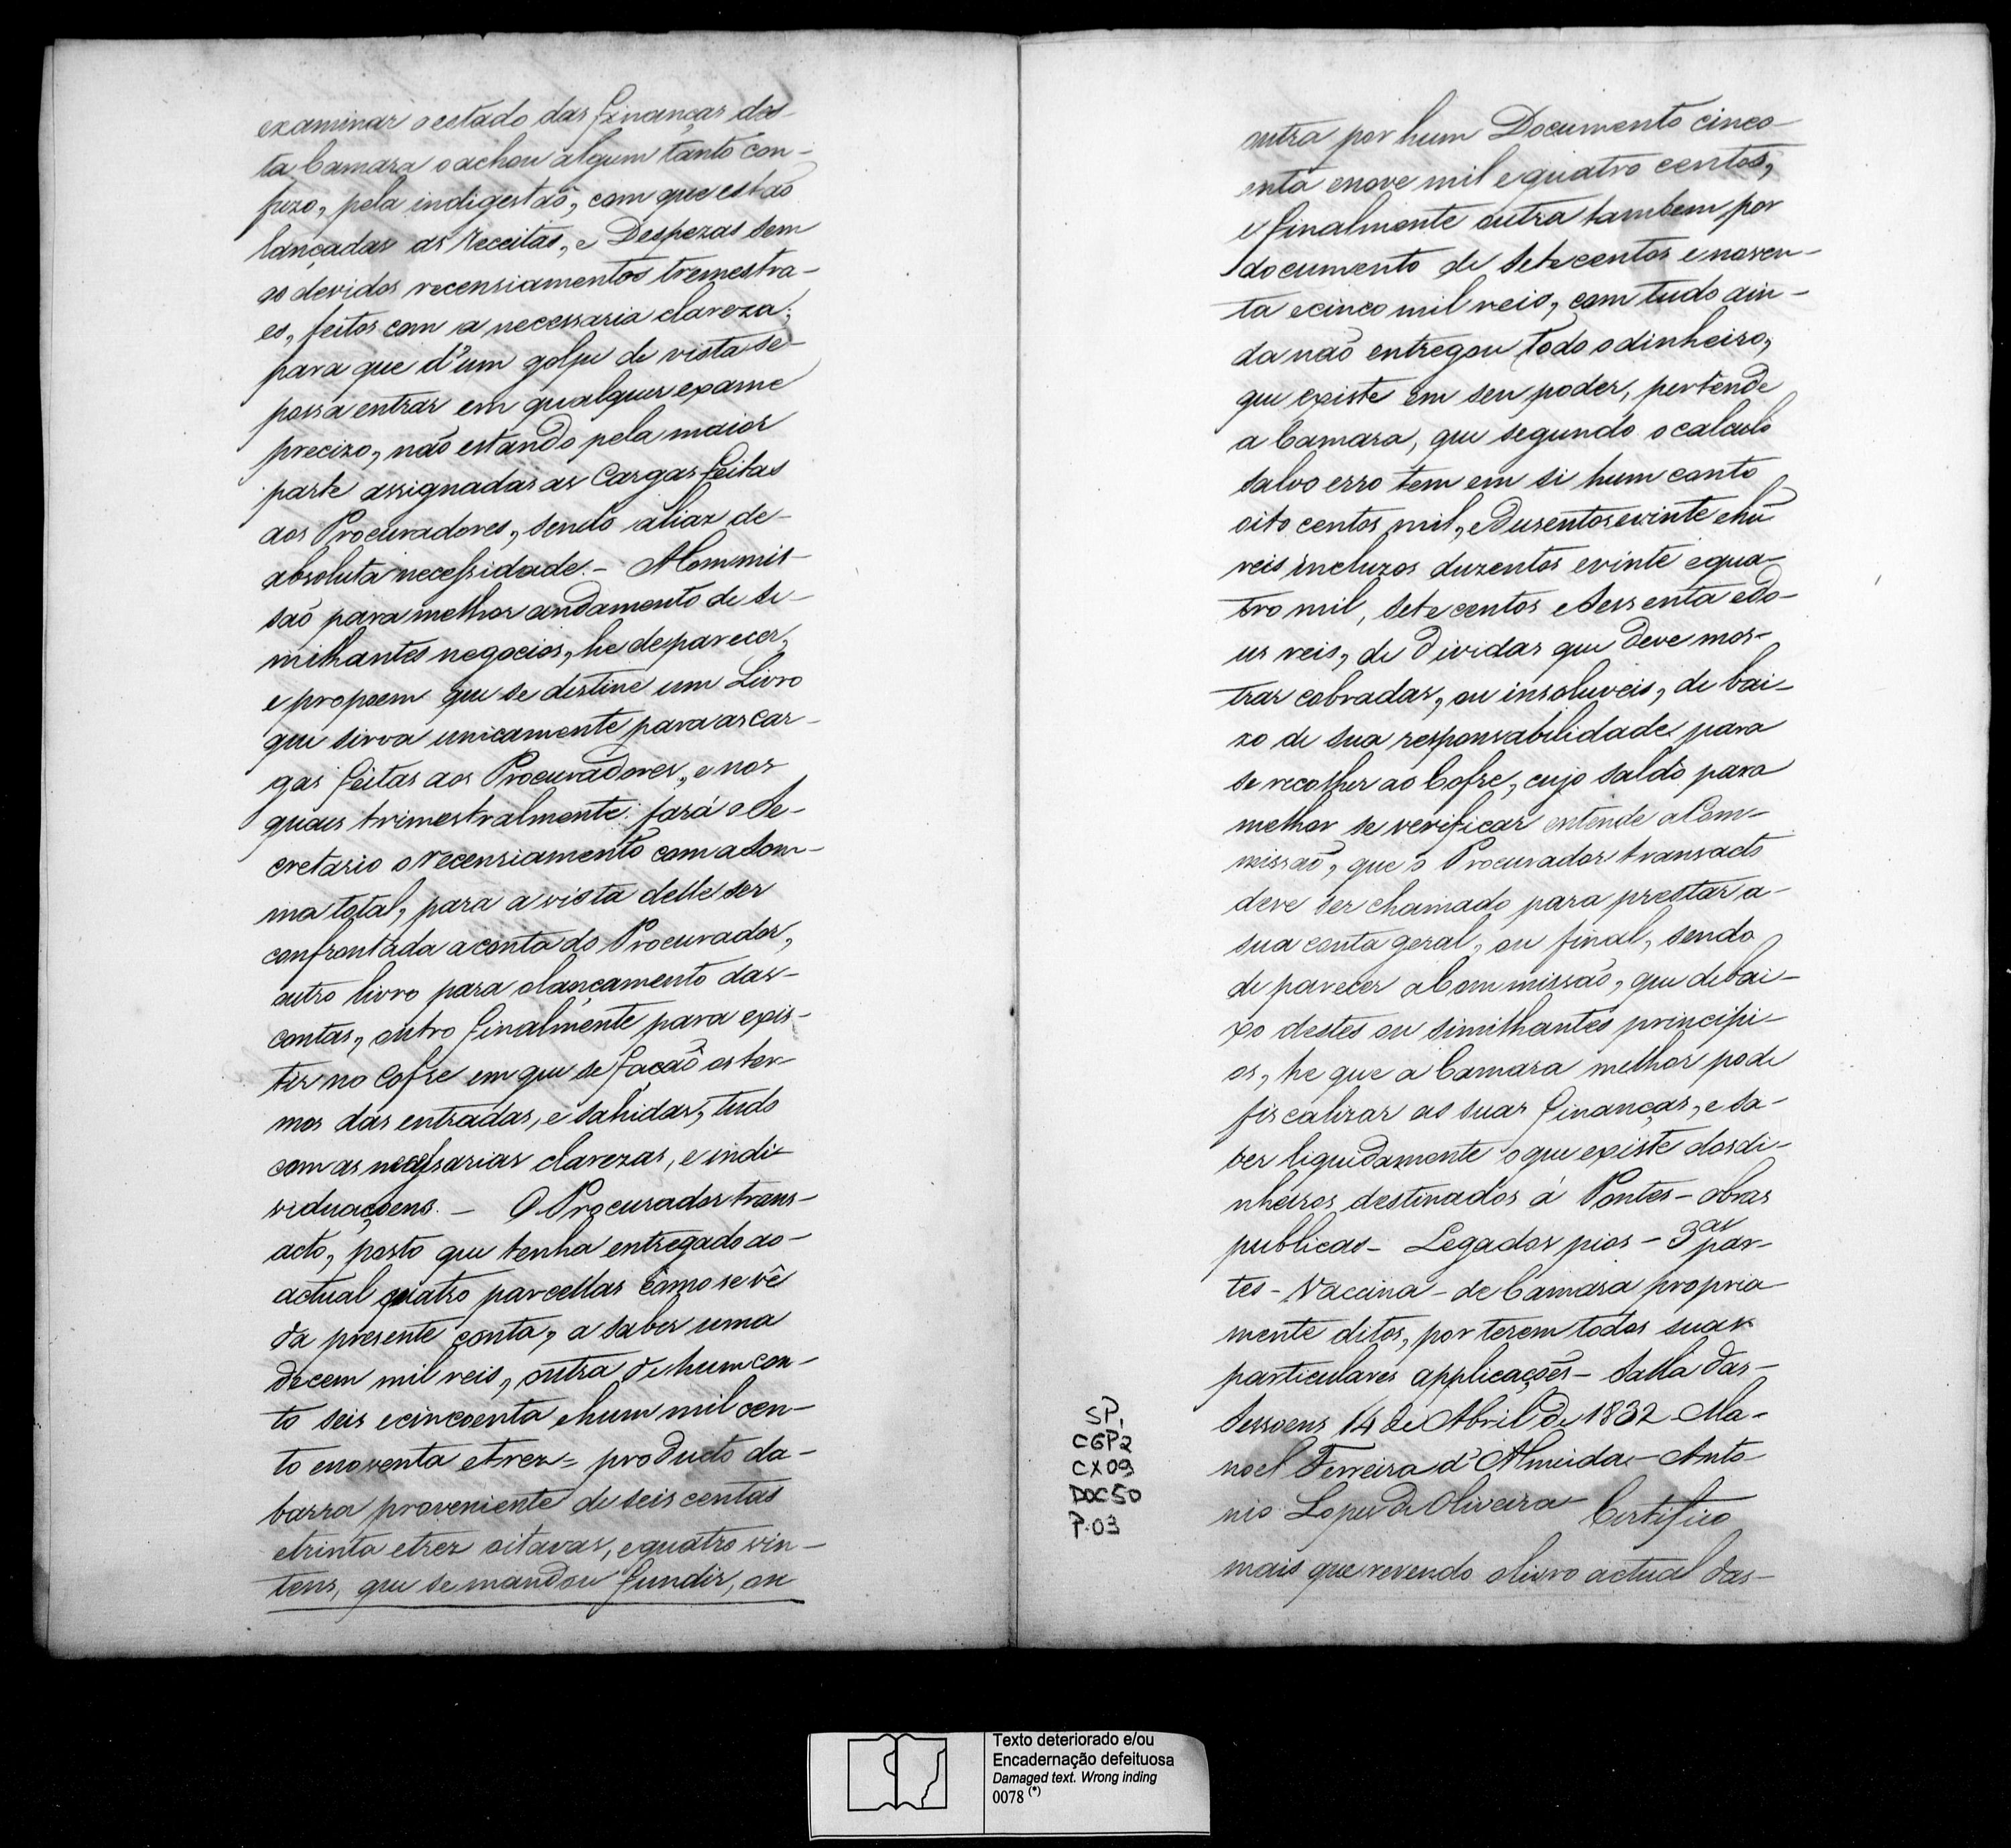 examinar o estado das finanças des-
ta Camara o achou algum tanto con-
fuzo, pela indigestão, com que estão
lançadas as receitas, e Despezas sem
os devidos recensiamentos tremestra-
es, feitos com a necessaria clareza;
para que d'um golpe de vista se-
possa entrar em qualquer exame
precizo, não estando pela maior
parte assignadas as Cargas feitas
aos Procuradores, sendo aliaz de-
absoluta necessidade. - A Commis-
são para melhor andamento de se-
milhantes negocios, he de parecer,
e propoem que se destine um Livro
que sirva unicamente para as car-
gas feitas aos Procuradores, e nos
quaes trimestralmente fará o Se-
cretario o recensiamento com a som-
ma total, para a vista delle ser
confrontada a conta do Procurador,
outro livro para o lançamento das-
contas, outro finalmente para exis-
tir no Cofre em que se fação os ter-
mos das entradas, e sahidas, tudo
com as necessarias clarezas, e indi-
viduaçoens. - O Procurador trans-
acto, posto que tenha entregado ao-
actual quatro parcellas como se vê
da presente conta, a saber uma
de cem mil reis, outra de hum con-
to seis e cincoenta e hum mil cen-
to e noventa e trez = producto da-
barra proveniente de seis centas
e trinta e trez oitavas, e quatro vin-
tens, que se mandou fundir, ou
outra por hum Documento cinco-
enta e nove mil e quatro centos,
e finalmente outra tambem por
documento de sete centos e noven-
ta e cinco mil reis, com tudo ain-
da não entregou todo o dinheiro,
que existe em seu poder, pertende
a Camara, que segundo o calculo
salvo erro tem em si hum conto
oito centos mil, e Dusentos e vinte e hũ
reis incluzos duzentos e vinte e qua-
tro mil, sete centos e sessenta e do-
us reis, de Dividas que deve mos-
trar cobradas, ou insoluveis, de bai-
xo de sua responsabilidade para
se recolher ao Cofre, cujo saldo para
melhor se verificar entende a Com-
missão, que o Procurador transacto
deve ser chamado para prestar a-
sua conta geral, ou final, sendo
de parecer a Commissão, que debai-
xo destes ou similhantes principi-
os, he que a Camara melhor pode
fiscalizar as suas finanças, e sa-
ber liquidamente o que existe dos di-
nheiros destinados á Pontes - obras
publicas - Legados pios - 3as par-
tes - Vaccina - de Camara propria
mente ditos, por terem todos suas
particulares applicações - Salla das-
Sessoens 14 de Abril de 1832 - Ma-
noel Ferreira d'Almeida - Anto
nio Lopes de Oliveira - Certifico
mais que revendo o livro actual das-
SP.
CGP2
CX09
DOC50
P.03
Texto deteriorado e/ou
Encadernação defeituosa
Damaged text. Wrong inding
0078 (*)